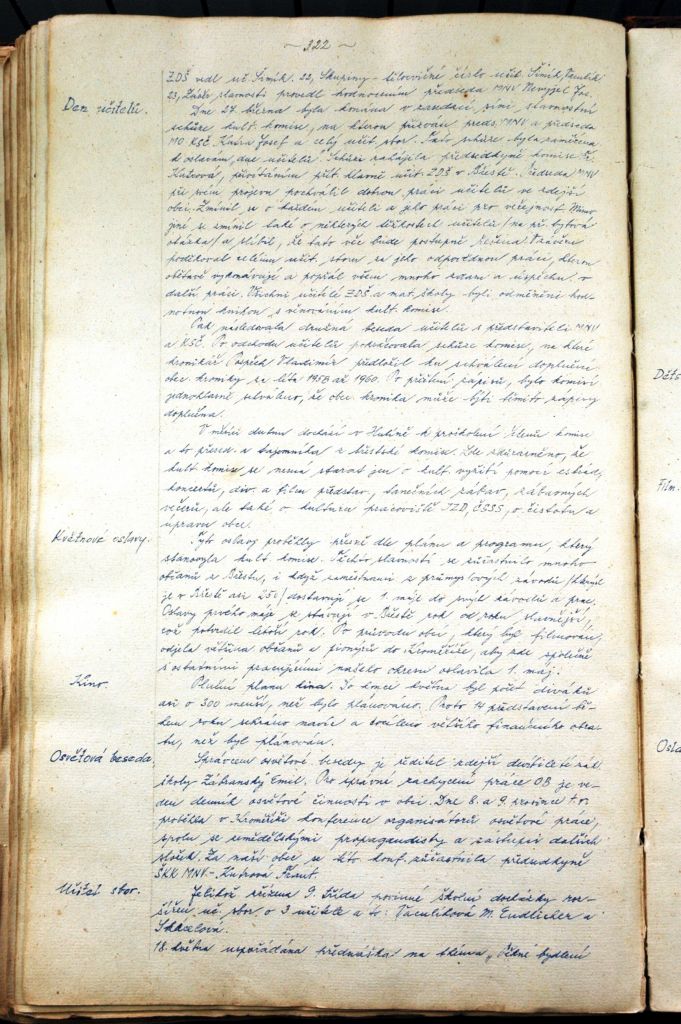 ~ 322 ~
ZDŠ vedl uč. Šimík. 22, Skupiny - tělocvičné číslo učit. Šimík, Vaculík
23, Závěr slavnosti provedl hodnocením předseda MNV Nevyjel Jos.
Den učitelů.
Dne 27. března byla konána v zasedací síni slavnostní
schůze kult. komise, na kterou přizván předs. MNV a předseda
MO KSČ. Josef a celý učit. sbor. Tato schůze byla zaměřena
k oslavám dne učitelů. Schůzi zahájila předsedkyně komise
přivítáním přít. hlavně učit. ZDŠ v Břestě. Předseda MNV
při svém projevu pochválil dobrou práci učitelů ve zdejší
obci. Zmínil se o každém učiteli a jeho práci pro veřejnost. Mimo
jiné se zmínil také o některých těžkostech učitelů /na př. bytová
otázka/ a slíbil, že tato věc bude postupně řešena. Závěrem
poděkoval celému učit. sboru za jeho odpovědnou práci, kterou
obětavě vykonávají a popřál všem mnoho zdaru a úspěchu v
další práci. Všichni učitelé ZDŠ a mat. školy byli odměněni hod-
notnou knihou s věnováním kult. komise.
Pak následovala družná beseda učitelů s představiteli MNV
a KSČ. Po odchodu učitelů pokračovala schůze komise, na které
kronikář Pospěch Vladimír předložil ku schválení doplnění
obec. kroniky za léta 1958 až 1960. Po přečtení zápisů, bylo komisí
jednohlasně schváleno, že obec. kronika může býti těmito zápisy
doplněna.
V měsíci dubnu dochází v Hulíně k proškolení členů komise
a to předsed. a tajemníka z břestské komise. Zde zdůrazněno, že
kult. komise se nesmí starat jen o kult. vyžití pomocí estrád,
koncertů, div. a film. představ., tanečních zábav, zábavných
večerů, ale také o kulturu pracovišť JZD, ČSSS, o čistotu a
úpravu obce.
Květnové oslavy.
Tyto oslavy proběhly přesně dle plánu a programu, který
stanovila kult. komise. Těchto slavností se zúčastnilo mnoho
občanů z Břestu, i když zaměstnanci z průmyslových závodů
je v Břestě asi 250/ dostavují se 1. máje do svých závodů a prac.
Oslavy prvého máje se stávají v Břestě rok od roku slavnější,
což potvrdil letoší rok. Po průvodu obcí, který byl filmován,
odjela většina občanů a pionýrů do Kroměříže, aby zde společně
s ostatními pracujícími našeho okresu oslavila 1. máj.
Kino.
Plnění plánu kina. Do konce května byl počet diváků
asi o 300 menší, než bylo plánováno. Proto 14 představení bě-
hem roku sehráno navíc a docíleno většího finančního obra-
tu, než byl plánován.
Osvětová beseda.
Správcem osvětové besedy je ředitel zdejší devítileté zákl.
školy Zábranský Emil. Pro správné zachycení práce OB je ve-
den deník osvětové činnosti v obci. Dne 8. a 9. prosince t. r.
proběhla v Kroměříži konference organisátorů osvětové práce,
spolu se zemědělskými propagandisty a zástupci dalších
složek. Za naši obec se této konf. zúčastnila předsedkyně
ŠKK MNV.-
Učitel. sbor.
Jelikož zřízena 9. třída povinné školní docházky roz-
šířen uč. sbor o 3 učitele a to: Vaculíková M. Endlicher a
Skácelová.
18. května uspořádána přednáška na thema „ bydlení
Film.